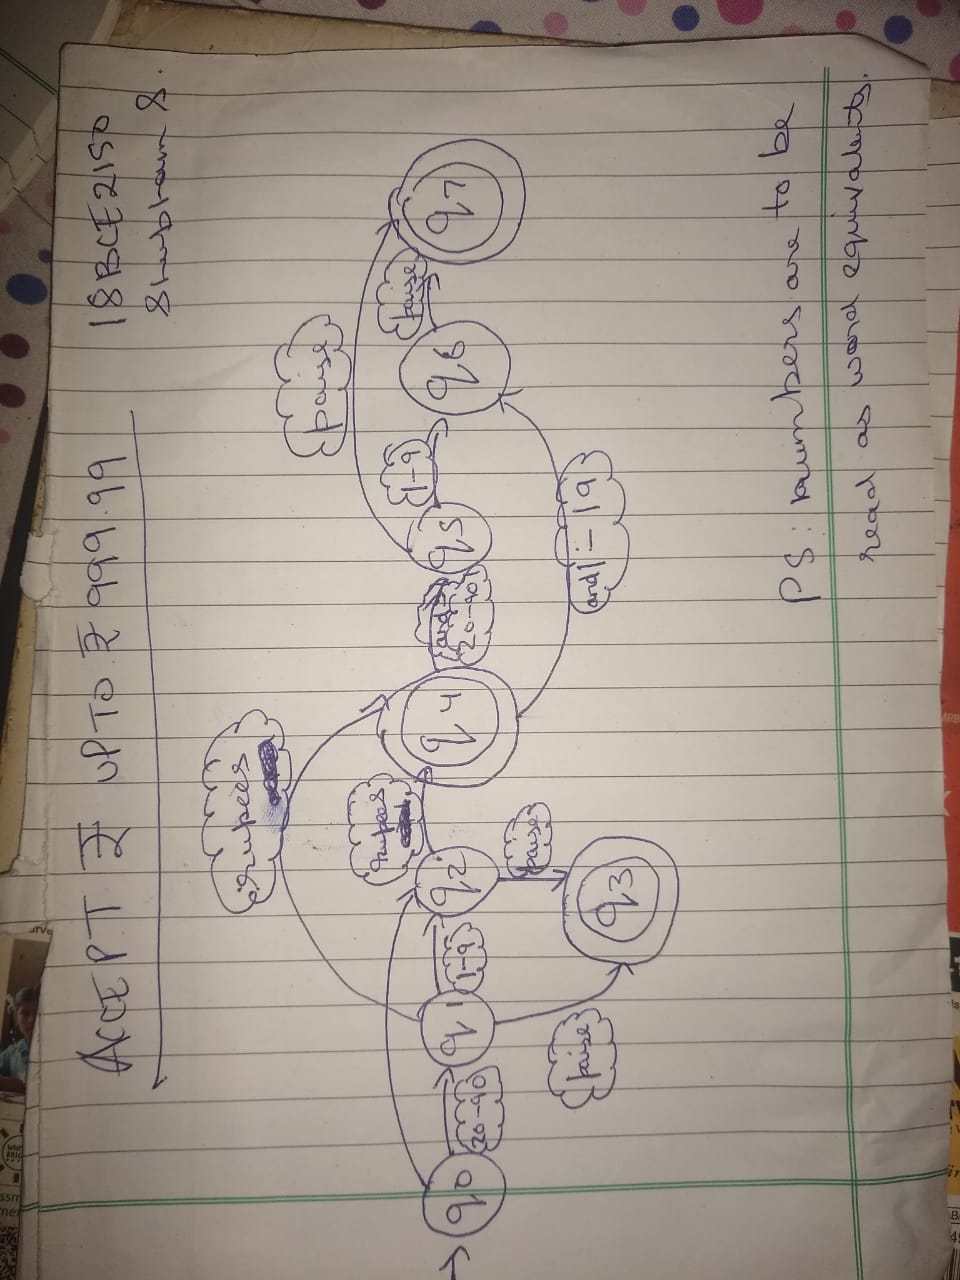 ACCEPT ₹ UPTO ₹ 999.99
18BCE2150
Shubham S.
rupees
paise
rupees
1-9
paise
q0
20-90
q1
1-9
q2
q4
and
20-90
q5
q6
q7
paise
paise
q3
and 1-19
PS: numbers are to be
read as word equivalents.